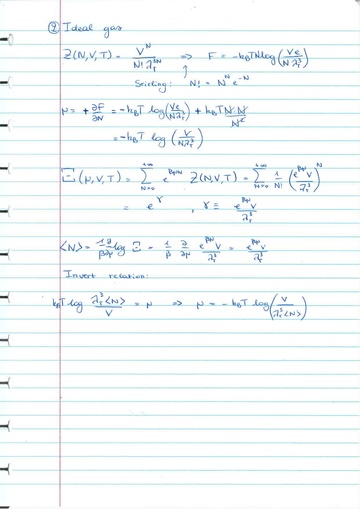 ② Ideal gas
Z(N,V,T) = V^N / (N! λ_T^{3N}) ⇒ F = -k_BTN log(Ve / (Nλ_T^3))
↑
Stirling: N! = N^N e^{-N}
μ = + ∂F/∂N = -k_BT log(Ve / (Nλ_T^3)) + k_BT N·N / N^2
= -k_BT log(V / (Nλ_T^3))
Ξ(μ,V,T) = Σ_{N=0}^{+∞} e^{βμN} Z(N,V,T) = Σ_{N=0}^{+∞} 1/N! (e^{βμ}V / λ_T^3)^N
= e^γ , γ ≡ e^{βμ}V / λ_T^3
<N> = 1/β ∂/∂μ log Ξ = 1/β ∂/∂μ e^{βμ}V / λ_T^3 = e^{βμ}V / λ_T^3
Invert relation:
k_BT log λ_T^3<N> / V = μ ⇒ μ = -k_BT log(V / (λ_T^3<N>))